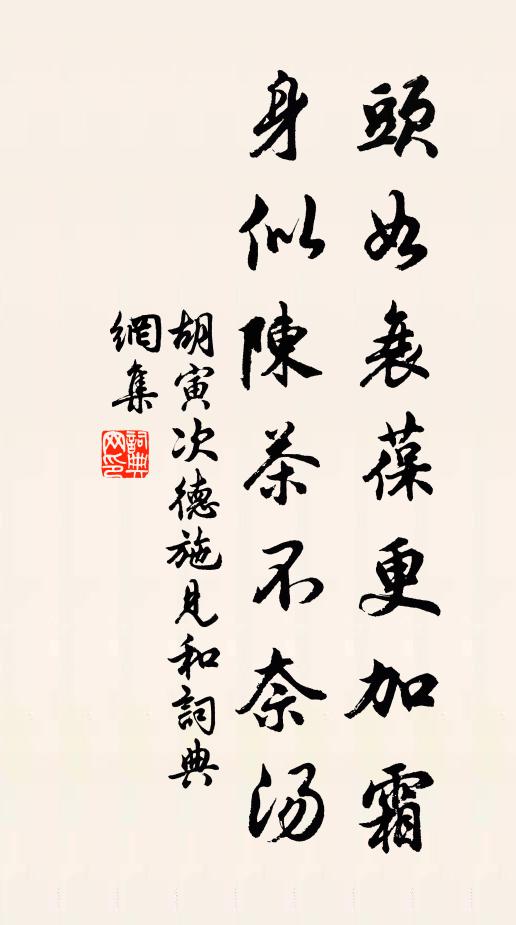 頭如衰葆更加霜
身似陳茶不奈湯
胡寅次德施見和詞典
網集
詞典
网印